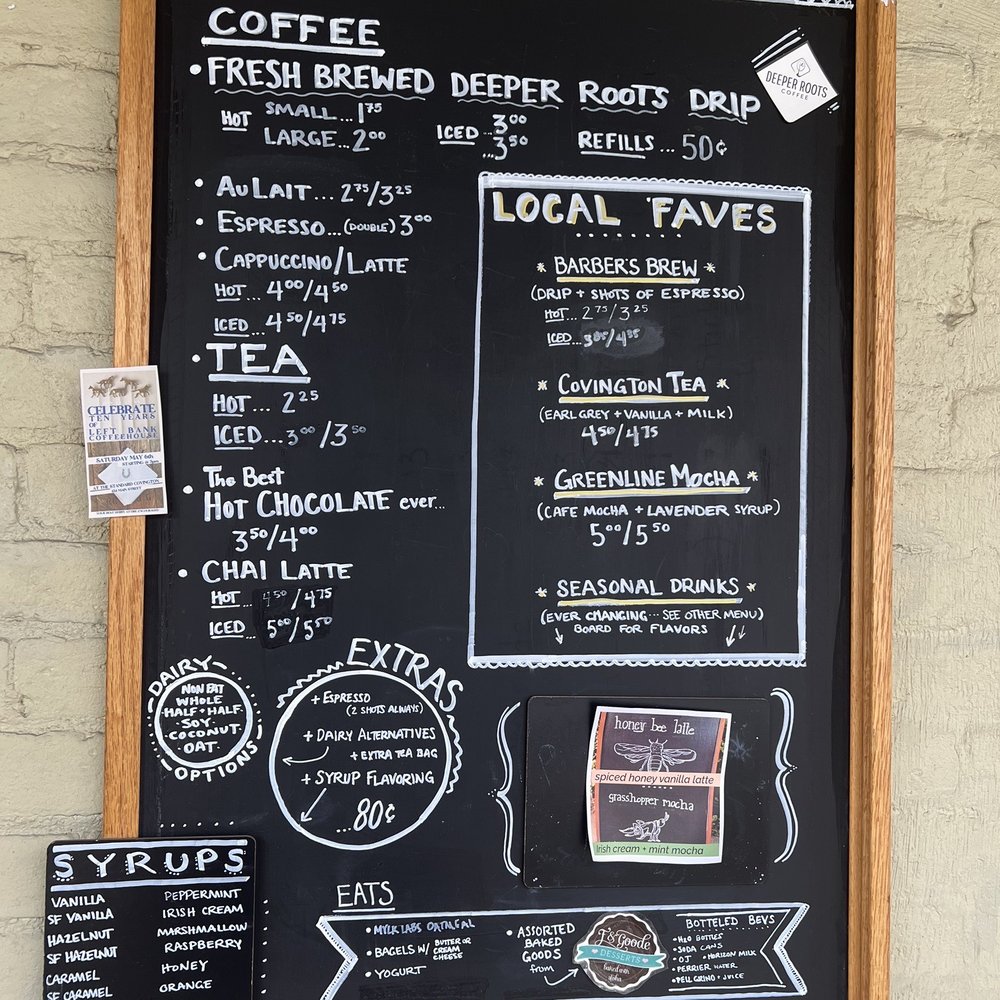 COFFEE
• FRESH BREWED DEEPER ROOTS DRIP
HOT SMALL...1.75
LARGE...2.00
ICED ...3.00
...3.50
REFILLS ... 50¢
DEEPER ROOTS
COFFEE
• AU LAIT ... 2.75/3.25
• ESPRESSO...(DOUBLE) 3.00
• CAPPUCCINO/LATTE
HOT ... 4.00/4.50
ICED ...4.50/4.75
• TEA
HOT ... 2.25
ICED...3.00/3.50
• The Best
HOT CHOCOLATE ever...
3.50/4.00
• CHAI LATTE
HOT ... 4.50/4.75
ICED ... 5.00/5.50
LOCAL FAVES
* BARBER'S BREW *
(DRIP + SHOTS OF ESPRESSO)
HOT...2.75/3.25
ICED...
* COVINGTON TEA *
(EARL GREY + VANILLA + MILK)
4.50/4.75
* GREENLINE MOCHA *
(CAFE MOCHA + LAVENDER SYRUP)
5.00/5.50
* SEASONAL DRINKS *
(EVER CHANGING... SEE OTHER MENU)
BOARD FOR FLAVORS
CELEBRATE
TEN YEARS
OF
LEFT BANK
COFFEEHOUSE
SATURDAY MAY 6th
AT THE STANDARD COVINGTON
DAIRY
NON FAT
WHOLE
HALF + HALF
· SOY ·
· COCONUT ·
OAT
OPTIONS
EXTRAS
+ ESPRESSO
(2 SHOTS ALWAYS)
+ DAIRY ALTERNATIVES
+ EXTRA TEA BAG
+ SYRUP FLAVORING
...80¢
honey bee latte
spiced honey vanilla latte
grasshopper mocha
Irish cream + mint mocha
SYRUPS
VANILLA
SF VANILLA
HAZELNUT
SF HAZELNUT
CARAMEL
SF CARAMEL
PEPPERMINT
IRISH CREAM
MARSHMALLOW
RASPBERRY
HONEY
ORANGE
EATS
• MYLK LABS OATMEAL
• BAGELS W/ BUTTER OR
CREAM
CHEESE
• YOGURT
• ASSORTED
BAKED
GOODS
from
J's Goode
DESSERTS
baked with
aloha
BOTTELED BEVS
• H2O BOTTLES
• SODA CANS
• OJ • HORIZON MILK
• PERRIER WATER
• PELLGRINO + JUICE